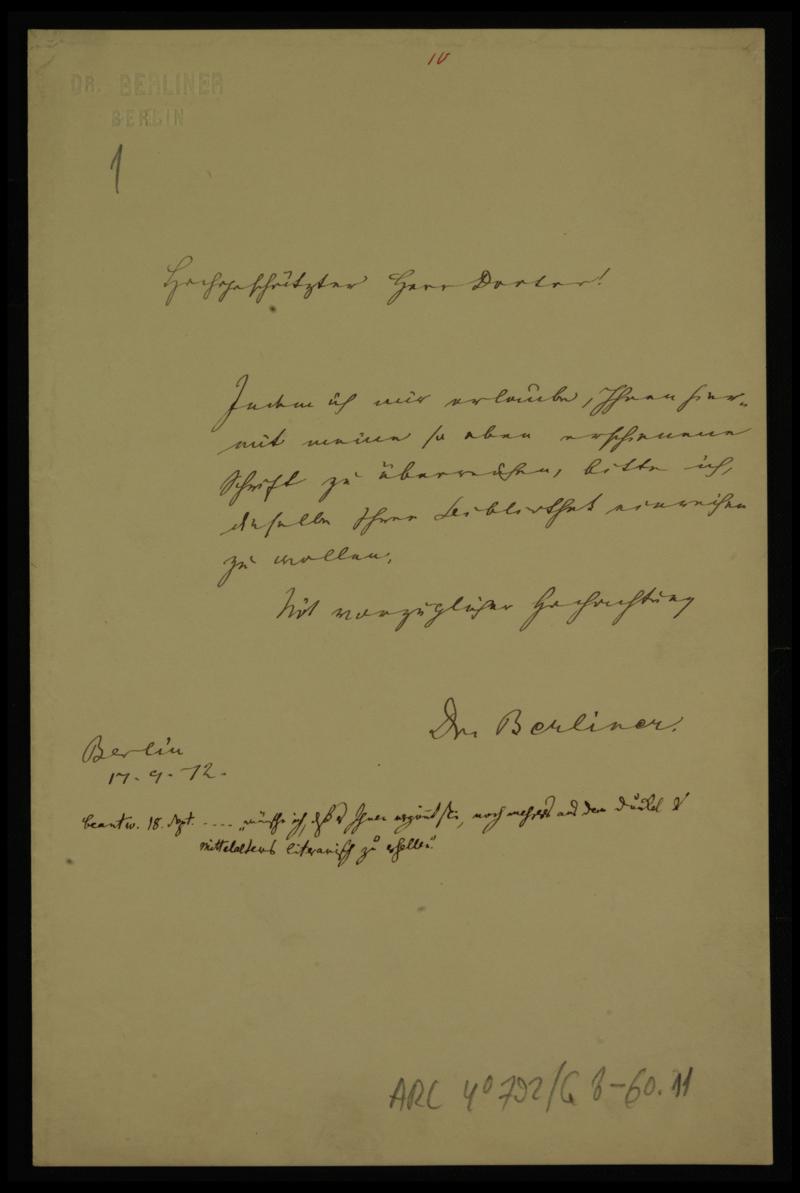 DR. BERLINER
BERLIN
10
1
Hochgeschätzter Herr Doctor!
Indem ich mir erlaube, Ihnen hier-
mit meine so eben erschienene
Schrift zu überreichen, bitte ich,
dieselbe Ihrer Bibliothek einreihen
zu wollen.
Mit vorzüglicher Hochachtung
Dr. Berliner.
Berlin
17. 9. 72.
beantw. 18. Sept. .... „wünsche ich, daß es Ihnen vergönnt sei, noch mehreres aus dem Dunkel d
Mittelalters literarisch zu erhellen“
ARC 4° 792/G 8-60.11